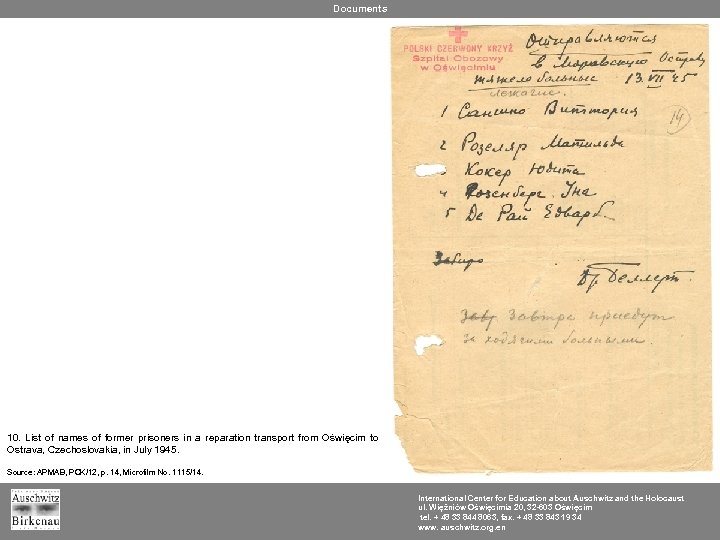 Documents
POLSKI CZERWONY KRZYŻ
Szpital Obozowy
w Oświęcimiu
Отправляются
в Моравскую Остраву
тяжело больные 13.VII 45
лежачие.
14
1 Сансино Виттория
2 Розеляр Матильда
Кокер Юдита
4 Розенберг Ина
5 Де Рай Едвард
Забир
Др. Деллерт
Зав. Завтра приедут
за ходячими больными.
10. List of names of former prisoners in a reparation transport from Oświęcim to
Ostrava, Czechoslovakia, in July 1945.
Source: APMAB, PCK/12, p. 14, Microfilm No. 1115/14.
Auschwitz
Birkenau
International Center for Education about Auschwitz and the Holocaust
ul. Więźniów Oświęcimia 20, 32-603 Oświęcim
tel. + 48 33 844 8063, fax. + 48 33 843 19 34
www. auschwitz.org.en